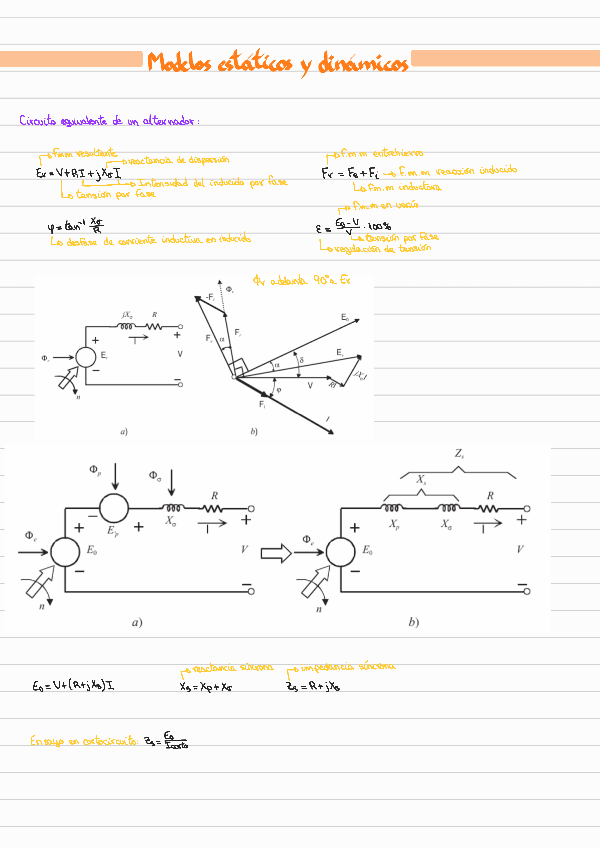 Modelos estáticos y dinámicos
Circuito equivalente de un alternador:
f.mm resultante
reactancia de dispersión
Er = V + RI + jXσI
Intensidad del inducido por fase
tensión por fase
f.m.m entrehierro
Fr = Fe + Fi → f.m.m reacción inducido
f.m.m inductora
φ = tan⁻¹ Xσ/R
desfase de corriente inductiva en inducido
f.m.m en vacío
ε = E0 - V / V · 100%
tensión por fase
regulación de tensión
Φr adelanta 90° a Er
jXσ R
Φe + Er - I V n
a)
-Fi Φr Fe α Fr E0 Er δ α V RI jXσI φ Fi I
b)
Φp Φσ
Ep Xσ R I
Φe E0 V n
a)
Zs
Xs
Xp Xσ R I
Φe E0 V n
b)
reactancia síncrona
impedancia síncrona
E0 = V + (R + jXs) I
Xs = Xp + Xσ
Zs = R + jXs
Ensayo en cortocircuito: Zs = E0 / Icorto